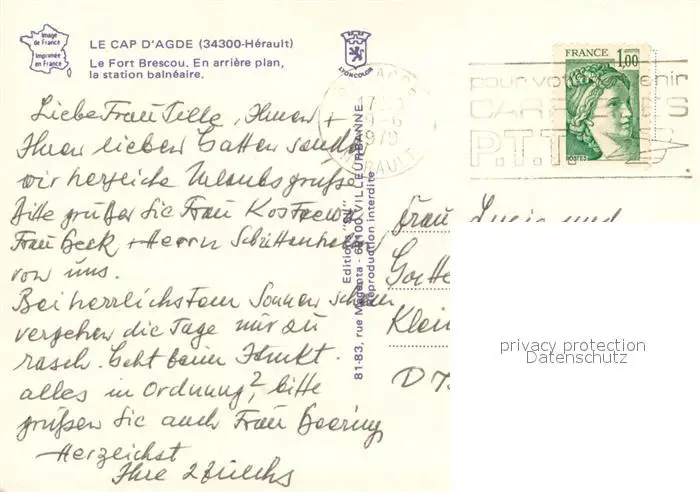 Image
de France
Imprimée
en France
LE CAP D'AGDE (34300-Hérault)
Le Fort Brescou. En arrière plan,
la station balnéaire.
LYONCOLOR
Liebe Frau Telle, Ihnen +
Ihrem lieben Gatten senden
wir herzliche Urlaubsgrüße.
Bitte grüßen Sie Frau
Frau Beck + Herrn
von uns.
Bei herrlichstem Sonnenschein
vergehen die Tage nur zu
rasch. Geht beim
alles in Ordnung? bitte
grüßen Sie auch Frau Goering
Herzlichst
Ihre
Editions "SL"
81-83, rue Magenta - 69100 VILLEURBANNE
Reproduction interdite
AGDE
1979
HERAULT
pour votre
P.T.T.
FRANCE 1,00
POSTES
Frau Lucie und
Klein
D 7
privacy protection
Datenschutz